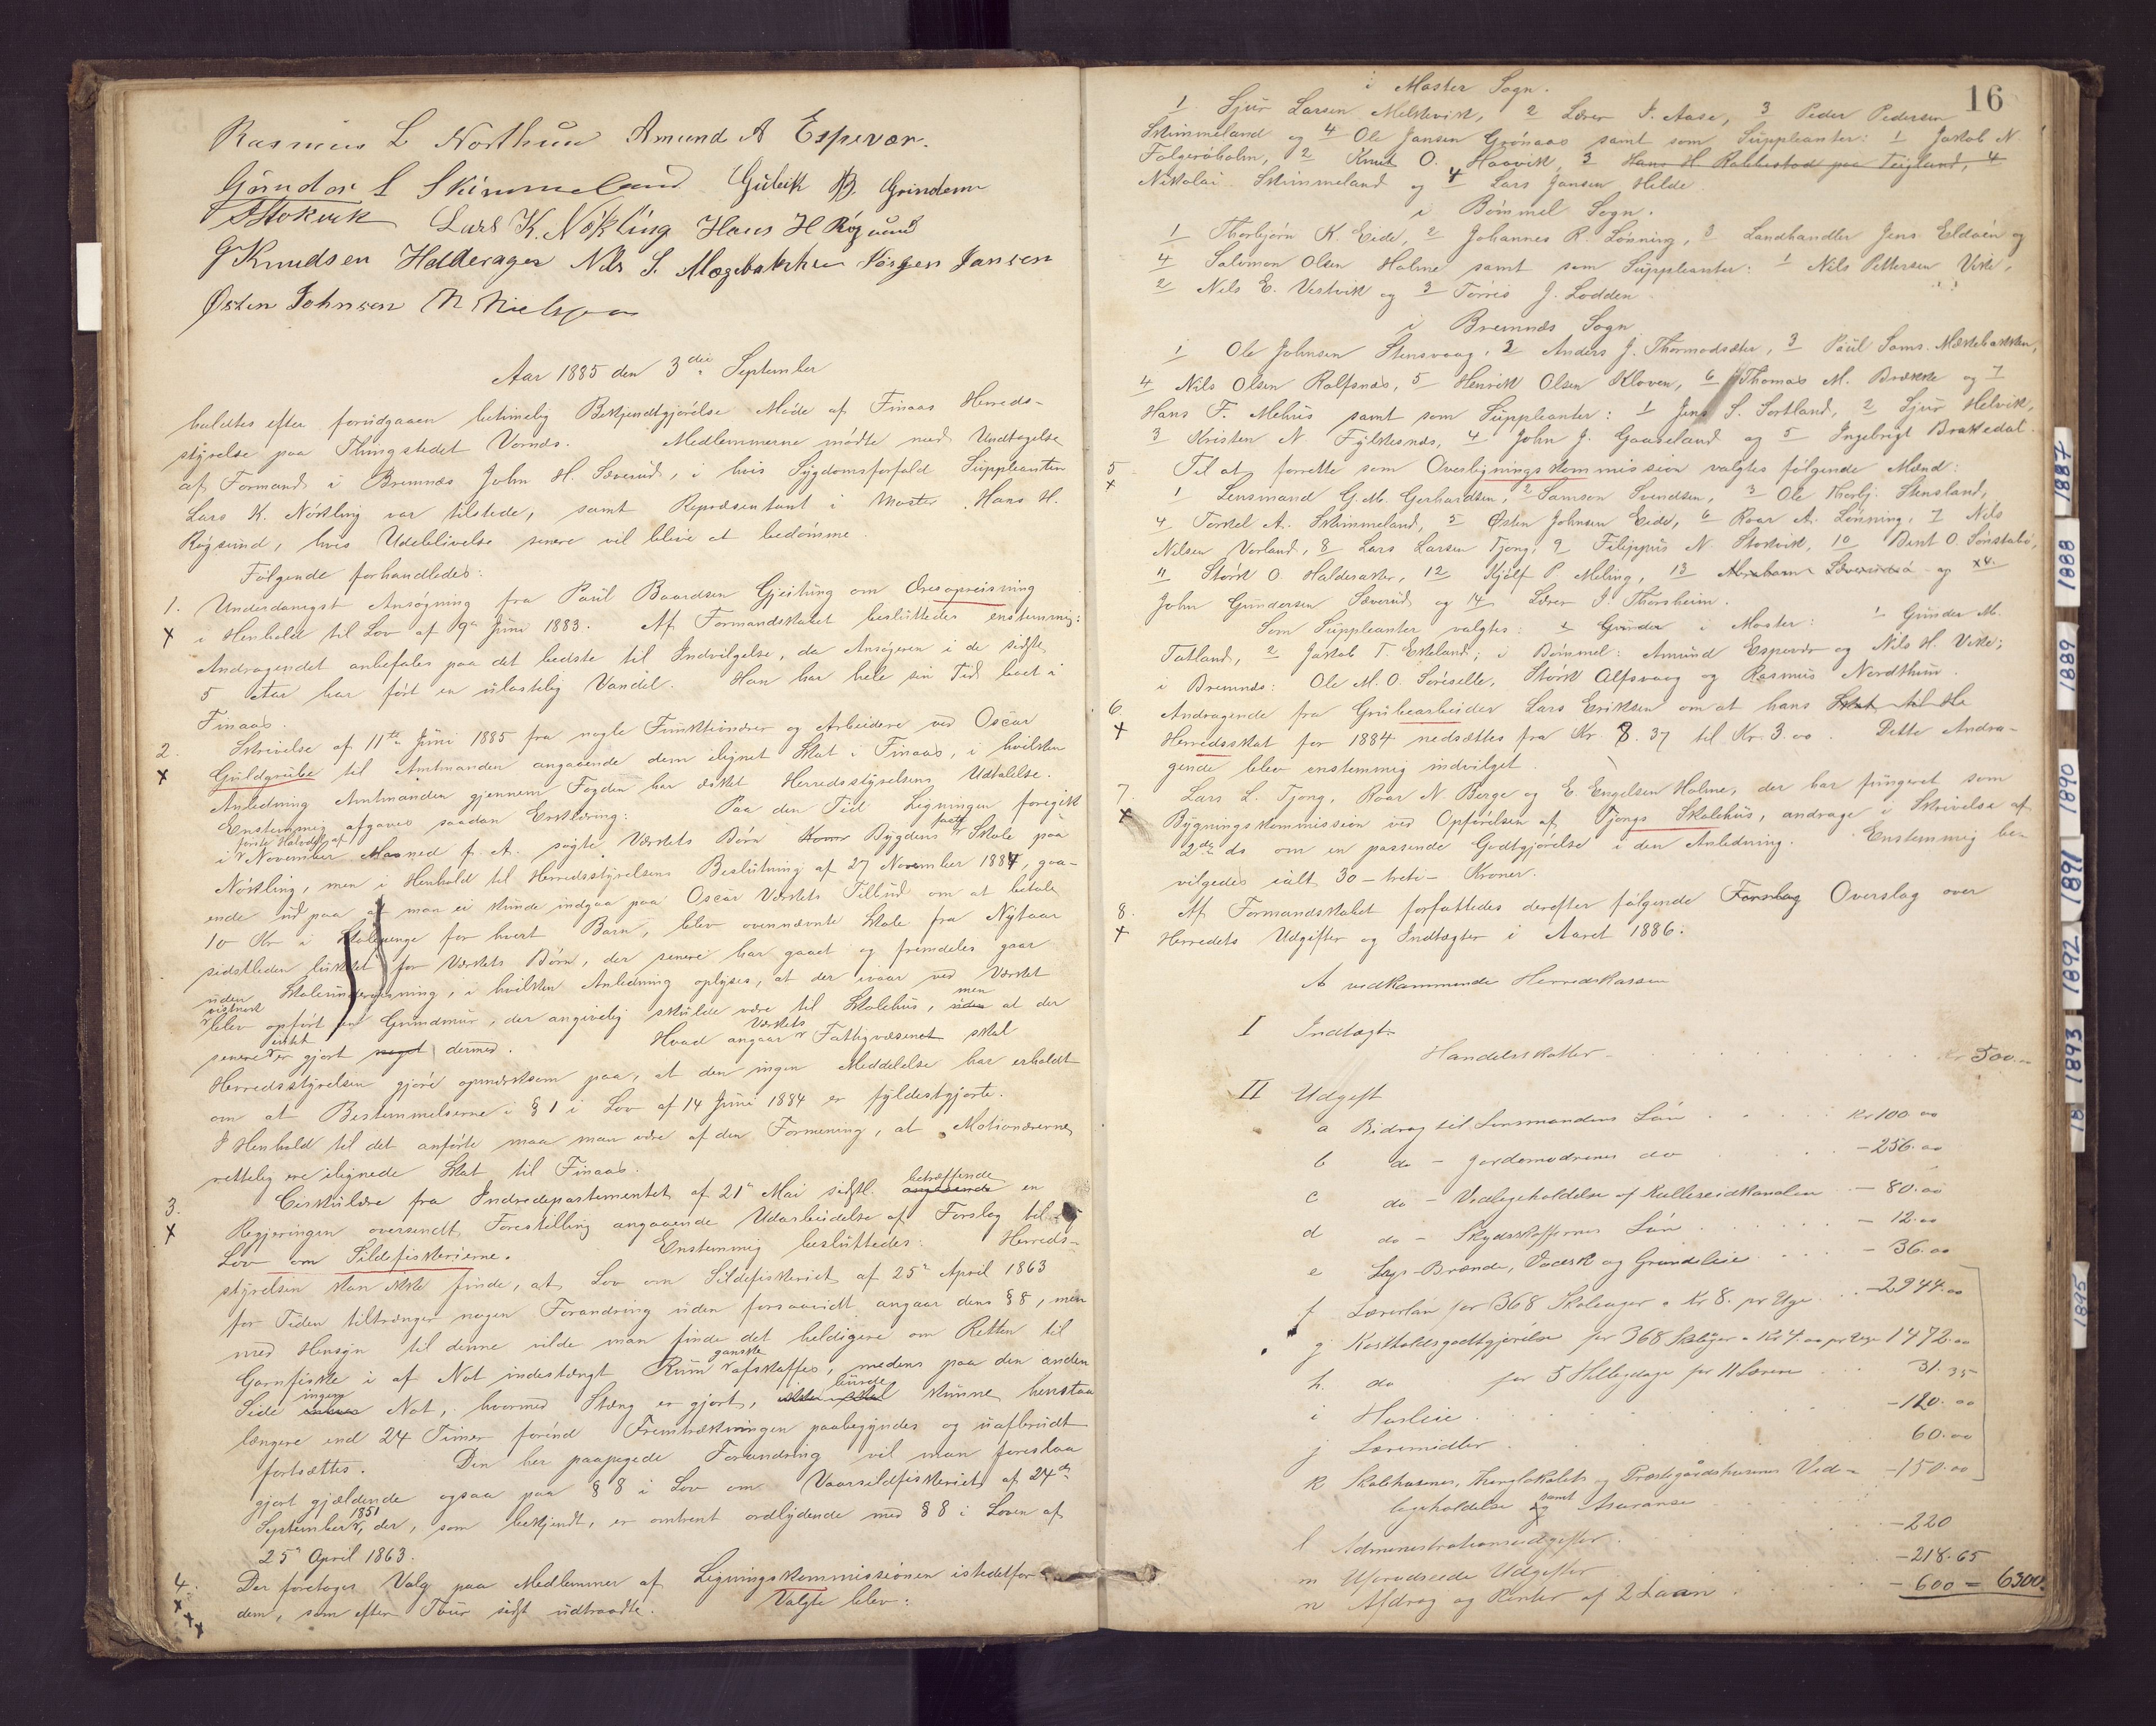 Rasmus L Northun Amund A Espevær.
Gunder L Skimmeland Guleik B. Grindem
Stokvik Lars K. Nökling Hans H Røgsund
G Knudsen Halderager Nils S. Mægebakken Jørgen Jansen
Østen Johnsen N Nielsen
Aar 1885 den 3die September
holdtes efter forudgaaen betimelig Bekjendtgjörelse Möde af Finaas Herreds-
styrelse paa Thingstedet Vornæs. Medlemmerne mödte med Undtagelse
af Formand i Bremnæs John H. Sæverud, i hvis Sygdomsforfald Suppleanten
Lars K. Nökling var tilstede, samt Repræsentant i Moster Hans H.
Røgsund, hvis Udeblivelse senere vil blive at bedömme.
Fölgende forhandledes:
1. Underdanigst Ansögning fra Paul Baardsen Gjeitung om Æresopreisning
x i Henhold til Lov af 9de Juni 1883. Af Formandskabet besluttedes enstemmig:
Andragendet anbefales paa det bedste til Indvilgelse, da Ansögeren i de sidste
5 Aar har fört en ulastelig Vandel. Han har hele sin Tid boet i
Finaas.
2. Skrivelse af 11te Juni 1885 fra nogle Funktionærer og Arbeidere ved Oscar
x Guldgrube til Amtmanden angaaende dem ilignet Skat i Finaas, i hvilken
Anledning Amtmanden gjennem Fogden har æsket Herredsstyrelsens Udtalelse.
Enstemmig afgaves saadan Erklæring: Paa den Tid Ligningen foregik
förste Halvdel af
i November Maaned f. A. sögte Værkets Börn Bygdens faste Skole paa
Nökling, men i Henhold til Herredsstyrelsens Beslutning af 27 November 1884, gaa-
ende ud paa at man ei kunde indgaa paa Oscar Værkets Tilbud om at betale
10 Kr i Skolepenge for hvert Barn, blev ovennævnte Skole fra Nytaar
sidstleden lukket for Værkets Börn, der senere har gaaet og fremdeles gaar
uden Skoleundervisning, i hvilken Anledning oplyses, at der ivaar ved Værket
vistnok men
blev opfört en Grundmur, der angivelig skulde være til Skolehus, uden at der
intet Værkets
senere er gjort noget dermed. Hvad angaar Fattigvæsenet skal
Herredsstyrelsen gjöre opmerksom paa, at den ingen Meddelelse har erholdt
om at Bestemmelserne i § 1 i Lov af 14 Juni 1884 er fyldestgjorte.
I Henhold til det anförte maa man være af den Formening, at Motionærerne
rettelig ere ilignede Skat til Finaas.
3. Cirkulære fra Indredepartementet af 21de Mai sidstl. betræffende angaaende en
x Regjeringen oversendt Forestilling angaaende Udarbeidelse af Forslag til
Lov om Sildefiskerierne. Enstemmig besluttedes: Herreds-
styrelsen kan ikke finde, at Lov om Sildefiskeriet af 25de April 1863
for Tiden tiltrænger nogen Forandring uden forsaavidt angaar dens § 8, men
med Hensyn til denne vilde man finde det heldigere om Retten til
Garnfiske i af Not indestængt Rum ganske afskaffes, medens paa den anden
Side ingen Not, hvormed Stæng er gjort, burde kunne henstaa
længere end 24 Timer forend Fremtrækningen paabegyndes og uafbrudt
fortsættes. Den her paapegede Forandring vil man foreslaa
gjort gjældende ogsaa paa § 8 i Lov om Vaarsildfiskeriet af 24de
September 1851, der, som bekjendt, er omtrent ordlydende med § 8 i Loven af
25de April 1863.
4. Der foretoges Valg paa Medlemmer af Ligningskommissionen istedetfor
x dem, som efter Tour sidst udtraadte. Valgte blev:
x
x
16
i Moster Sogn.
1 Sjur Larsen Mælkevik, 2 Lærer J. Aase, 3 Peder Pedersen
Skimmeland og 4 Ole Jansen Grönaas samt som Suppleanter: 1 Jakob N
Folgeröholm, 2 Knut O. Haavik, 3 Hans H. Rabbestad paa Teigland, 4
Nikolai Skimmeland og 4 Lars Jansen Hilde.
i Bömmel Sogn.
1 Thorbjörn K. Eide, 2 Johannes R. Lönning, 3 Landhandler Jens Eldöen og
4 Salomon Olsen Holme samt som Suppleanter: 1 Nils Pettersen Vike,
2 Nils E. Vestvik og 3 Torres J. Lodden.
i Bremnæs Sogn
1 Ole Johnsen Stensvaag, 2 Anders J. Thormodsæter, 3 Paul Sams. Mækebakken,
4 Nils Olsen Rolfsnæs, 5 Henrik Olsen Kloven, 6 Thomas M. Brække og 7
Hans F. Mehus samt som Suppleanter: 1 Jens S. Sortland, 2 Sjur Helvik,
3 Kristen N. Fylkesnæs, 4 John J. Gaaseland og 5 Ingebrigt Brakedal.
5 Til at forrette som Overligningskommission valgtes fölgende Mænd:
x 1 Lensmand G. M. Gerhardsen, 2 Samson Svendsen, 3 Ole Thorbj. Stensland,
4 Torkel A. Skimmeland, 5 Østen Johnsen Eide, 6 Roar A. Lönning, 7 Nils
Nilsen Vorland, 8 Lars Larsen Tjong, 9 Filippus N Stokvik, 10 Bent O. Sönstabö,
11 Störk O. Halderaker, 12 Kjölf P. Meling, 13 Abraham Sæverud og
John Gundersen Sæverud og 14 Lærer J. Thorsheim.
Som Suppleanter valgtes: 1 Gunder i Moster: 1 Gunder M.
Tatland, 2 Jakob T. Eskeland; i Bömmel: Amund Espevær og Nils H. Vike;
i Bremnæs: Ole M. O. Söreselle, Störk Alfsvaag og Rasmus Nordthun.
6. Andragende fra Grubearbeider Lars Eriksen om at hans Skat til He
x Herredsskat for 1884 nedsættes fra Kr. 8.37 til Kr. 3.00. Dette Andra-
gende blev enstemmig indvilget.
7. Lars L. Tjong, Roar N. Berge og E. Engelsen Holme, der har fungeret som
x Bygningskommission ved Opförelsen af Tjongs Skolehus, andrage i Skrivelse af
2den ds om en passende Godtgjörelse i den Anledning. Enstemmig be-
vilgedes ialt 30 - treti - Kroner.
8. Af Formandskabet forfattedes derefter fölgende Forslag Overslag over
x Herredets Udgifter og Indtægter i Aaret 1886.
A vedkommende Herredskassen
I Indtægt.
Handelsskatter kr 500.-
II Udgift
a Bidrag til Lensmandens Lön Kr 100.00
b do - Jordemødrenes do - 256.00
c do - Vedligeholdelse af Kulleseidkanalen - 80.00
d do - Skydsskaffernes Lön - 12.00
e Lys - Brænde, Vadsk og Grundleie - 36.00
f Lærerlön for 368 Skoleuger a Kr 8. pr Uge - 2944.00
g Kostholdsgodtgjörelse for 368 Skoleuger a Kr 4.00 pr Uge 1472.00
h. do for 5 Helligdage for 11 Lærere 31.35
i Husleie - 120.00
j Læremidler 60.00
k Skolehusenes, Thinglokalets og Præstegaardshusenes Ved- - 150.00
ligeholdelse og samt Assuranse
l Administrationsudgifter - 220
m Uforudseede Udgifter - 218.65
n Afdrag og Renter af 2 Laan - 600 = 6300.
1887
1888
1889
1890
1891
1892
1893
18
1895